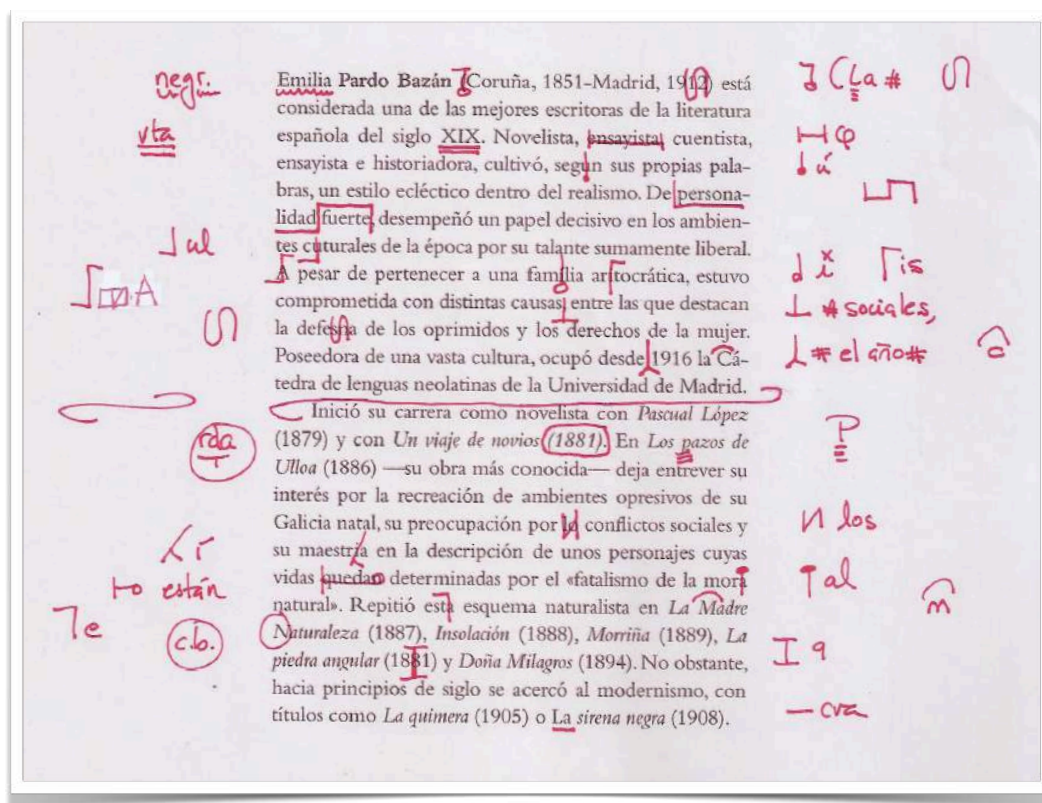 negr.
vta
ul
A
rda
í
están
e
c.b.
Emilia Pardo Bazán (Coruña, 1851-Madrid, 1912) está
considerada una de las mejores escritoras de la literatura
española del siglo XIX. Novelista, ensayista, cuentista,
ensayista e historiadora, cultivó, segun sus propias pala-
bras, un estilo ecléctico dentro del realismo. De persona-
lidad fuerte, desempeñó un papel decisivo en los ambien-
tes cuturales de la época por su talante sumamente liberal.
A pesar de pertenecer a una família aritocrática, estuvo
comprometida con distintas causas, entre las que destacan
la defesna de los oprimidos y los derechos de la mujer.
Poseedora de una vasta cultura, ocupó desde 1916 la Cá-
tedra de lenguas neolatinas de la Universidad de Madrid.
Inició su carrera como novelista con Pascual López
(1879) y con Un viaje de novios (1881). En Los pazos de
Ulloa (1886) —su obra más conocida— deja entrever su
interés por la recreación de ambientes opresivos de su
Galicia natal, su preocupación por conflictos sociales y
su maestría en la descripción de unos personajes cuyas
vidas quedan determinadas por el «fatalismo de la mora
natural». Repitió esta esquema naturalista en La Madre
Naturaleza (1887), Insolación (1888), Morriña (1889), La
piedra angular (1881) y Doña Milagros (1894). No obstante,
hacia principios de siglo se acercó al modernismo, con
títulos como La quimera (1905) o La sirena negra (1908).
(La #
ú
i is
# sociales,
# el año# c
P
los
al m
9
cva